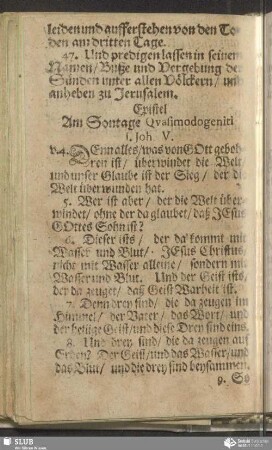 leiden und aufferstehen von den To-
den am dritten Tage.
47. Und predigen lassen in seinem
Namen / Busse und Vergebung der
Sünden unter allen Völckern / und
anheben zu Jerusalem.
Epistel
Am Sontage Qvasimodogeniti
1. Joh V.
v.4. DEnn alles / was von GOtt geboh-
ren ist / überwindet die Welt
und unser Glaube ist der Sieg / der die
Welt überwunden hat.
5. Wer ist aber / der die Welt über-
windet / ohne der da glaubet / daß JEsus
GOttes Sohn ist?
6. Dieser ists / der da kommt mit
Wasser und Blut / JEsus Christus
nicht mit Wasser alleine / sondern mit
Wasser und Blut. Und der Geist ists,
der da zeuget / daß Geist Warheit ist.
7. Denn drey sind / die da zeugen im
Himmel / der Vater / das Wort / und
der heilige Geist / und diese Drey sind eins.
8. Und drey sind / die da zeugen auf
Erden? Der Geist / und das Wasser / und
das Blut / und die drey sind beysammen.
9. So
SLUB